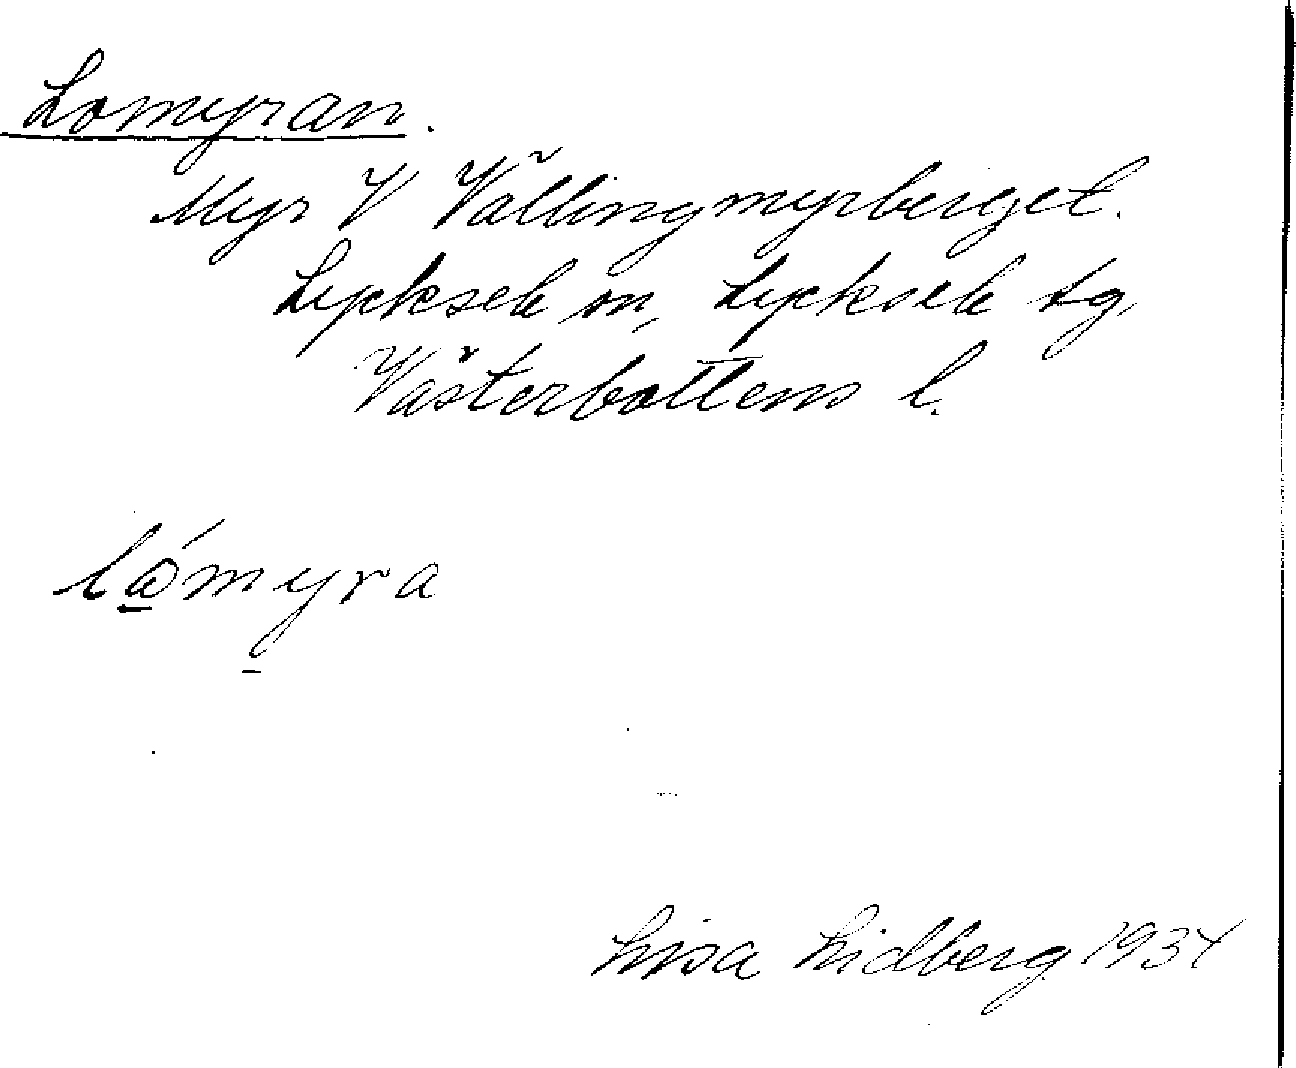 Lomyran.
Myr V Vällingmyrberget.
Lycksele sn, Lycksele tg,
Västerbottens l.
myra
Lisa Lidberg 1934